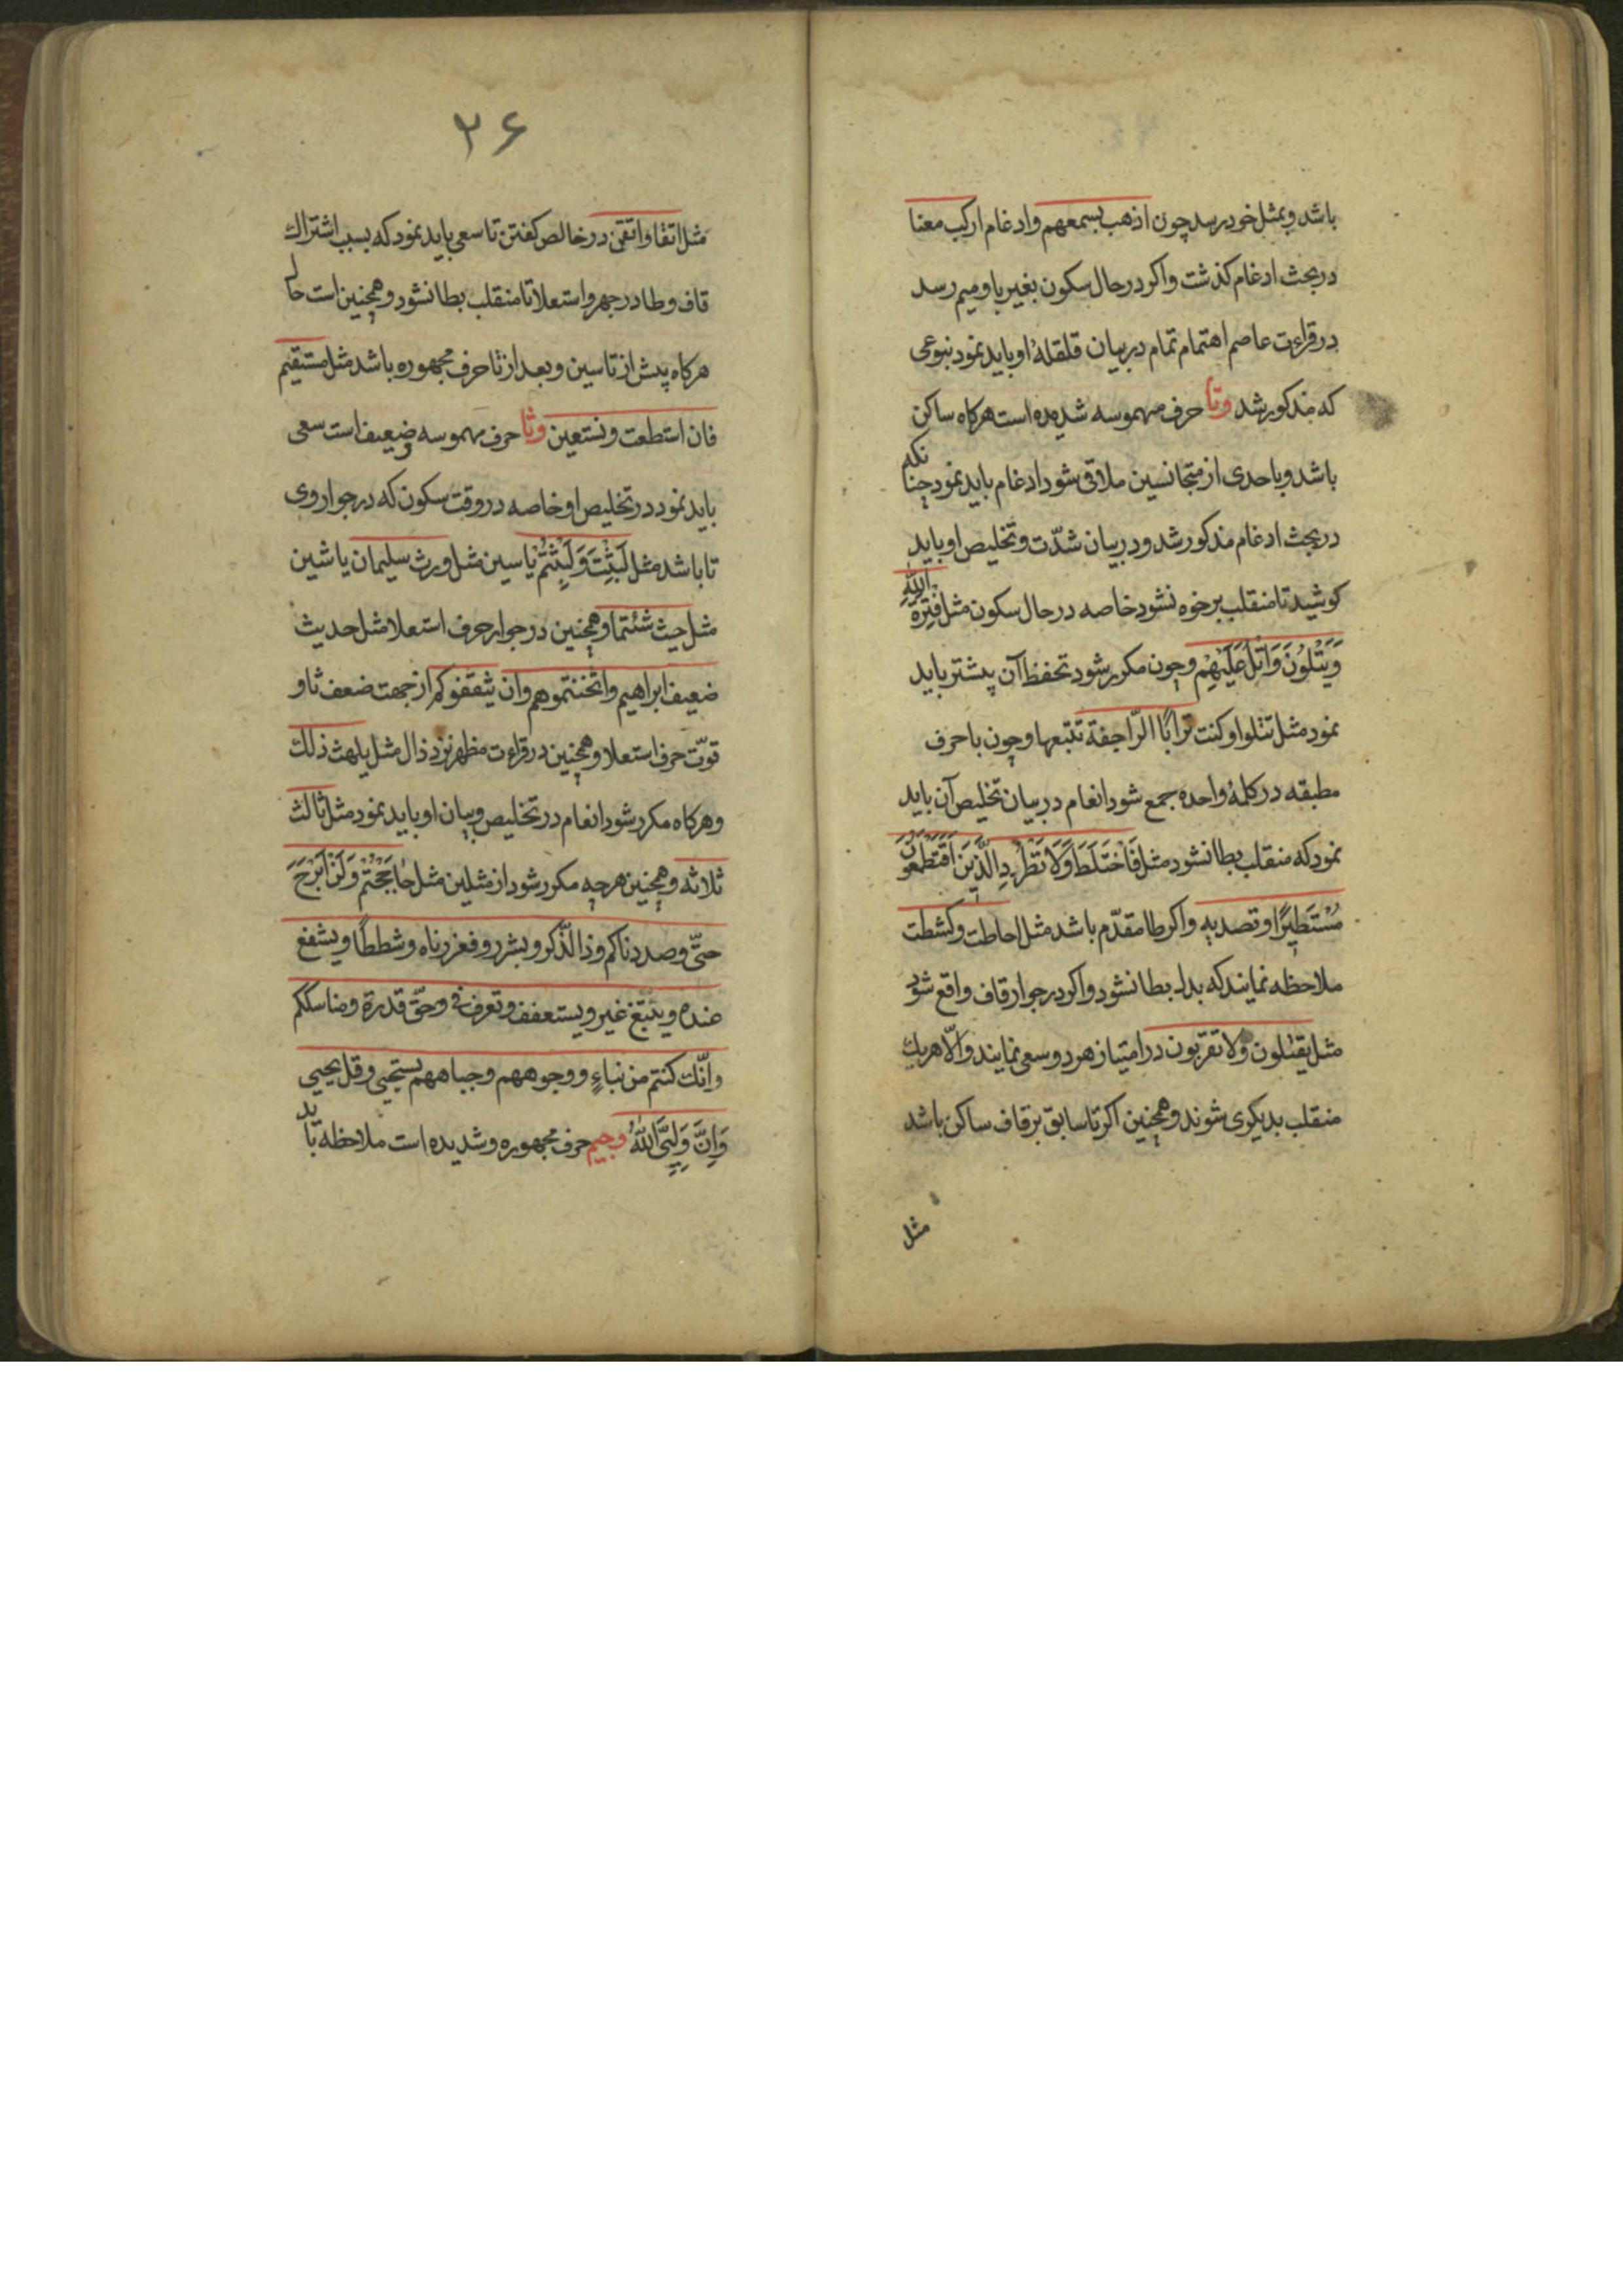 باشد و بمثل خود رسد چون اذهب بسمعهم و ادغام ارکب معنا
در بحث ادغام کذشت و اکر در حال سکون بغیر با و میم رسد
در قراءت عاصم اهتمام تمام در بیان قلقلهٔ او باید نمود بنوعی
که مذکور شد وتا حرف مهموسه شدیده است هرکاه ساکن
باشد و با حدی از متجانسین ملاقی شود ادغام باید نمود چنانکه
در بحث ادغام مذکور شد و در بیان شدّت و تخلیص او باید
کوشید تا منقلب برخوه نشود خاصه در حال سکون مثل
وَیَتْلُونَ وَاتْلُ عَلَیْهِمْ و چون مکرر شود تحفظ آن پیشتر باید
نمود مثل تتلوا و کنت تراباً الرّاجفة تتبعها و چون با حرف
مطبقه در کلمهٔ واحده جمع شود انعام در بیان تخلیص آن باید
نمود که منقلب بطا نشود مثل فَاخْتَلَطَ وَلَا تَطْرُدِ الَّذِینَ اَفَتَطْمَعُونَ
مُسْتَطِیرًا و تصدیه و اکر طا مقدّم باشد مثل احاطت و کشطت
ملاحظه نمایند که بدل بطا نشود و اکر در جوار قاف واقع شود
مثل یقتلون ولا تقربون در امتیاز هر دو سعی نمایند والّا هریك
منقلب بدیکری شوند و همچنین اکر تا سابق بر قاف ساکن باشد
مثل
۲۶
مثل اتقا واتقی در خالص کفتن تا سعی باید نمود که بسبب اشتراك
قاف و طا در جهر و استعلا تا منقلب بطا نشود و همچنین است حال
هرکاه پیش از تا سین و بعد از تا حرف مجهوره باشد مثل مستقیم
فان استطعت و نستعین وثا حرف مهموسه و ضعیف است سعی
باید نمود در تخلیص او خاصه در وقت سکون که در جوار وی
تا باشد مثل لَبِثْتَ وَلَبِثْتُمْ یا سین مثل ورث سلیمان یا شین
مثل حیث شئتما و همچنین در جوار حرف استعلا مثل حدیث
ضعیف ابراهیم و اثخنتموهم و ان یثقفوکم از جهت ضعف ثا و
قوّت حرف استعلا و همچنین در قراءت مظهر نزد ذال مثل یلهث ذلك
و هرکاه مکرر شود انعام در تخلیص و بیان او باید نمود مثل ثالث
ثلاثه و همچنین هرچه مکرر شود از مثلین مثل حَاجَجْتُمْ وَلَنْ اَبْرَحَ
حتّی و صددناکم و ذا الذّکر و بشرر و فعززناه و شططاً و یشفع
عنده و یتبّغ غیر و یستعفف و تعرف فی و حقّ قدرة و مناسککم
و انّك کنتم من نباءٍ و وجوههم و جباههم یستحیی و قل یحیی
وَاِنَّ وَلِیِّیَ اللّٰهُ وجیم حرف مجهوره و شدیده است ملاحظه باید